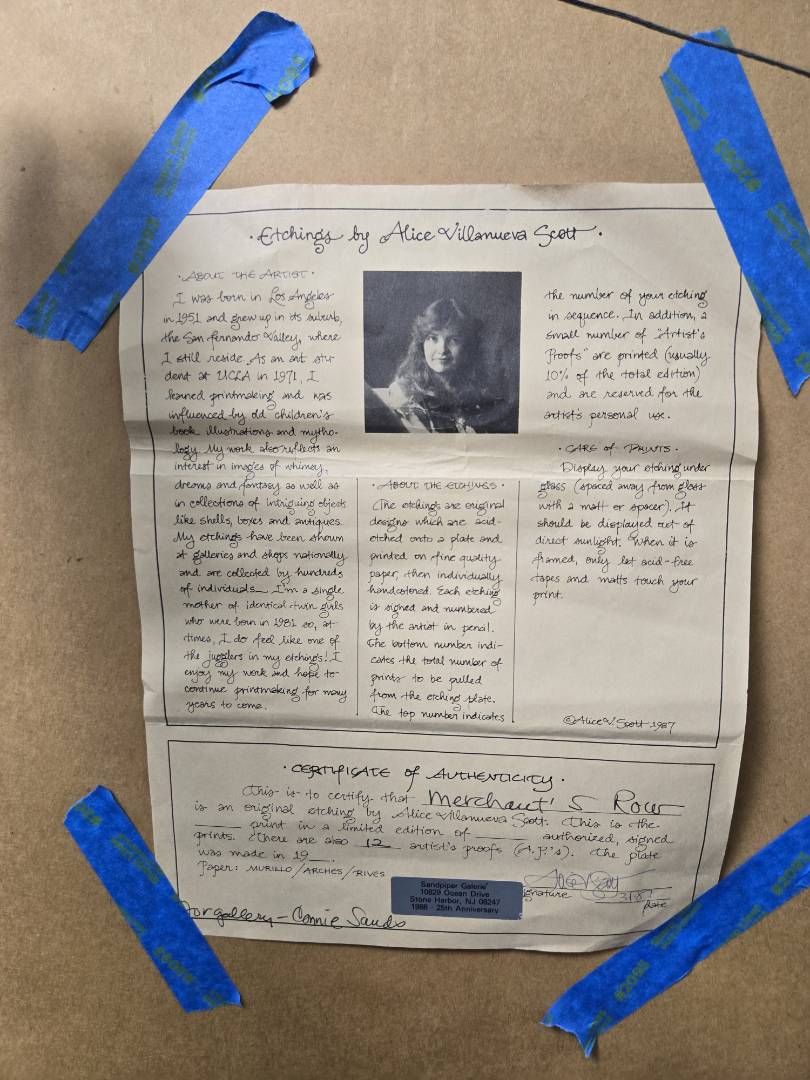 · Etchings by Alice Villanueva Scott ·
· ABOUT THE ARTIST ·
I was born in Los Angeles
in 1951 and grew up in its suburb,
the San Fernando Valley, where
I still reside. As an art stu-
dent at UCLA in 1971, I
learned printmaking and was
influenced by old children's
book illustrations and mytho-
logy. My work also reflects an
interest in images of whimsy,
dreams and fantasy as well as
in collections of intriguing objects
like shells, boxes and antiques.
My etchings have been shown
at galleries and shops nationally
and are collected by hundreds
of individuals. I'm a single
mother of identical twin girls
who were born in 1981 so, at
times, I do feel like one of
the jugglers in my etchings! I
enjoy my work and hope to
continue printmaking for many
years to come.
· ABOUT THE ETCHINGS ·
The etchings are original
designs which are acid-
etched onto a plate and
printed on fine quality
paper, then individually
handcolored. Each etching
is signed and numbered
by the artist in pencil.
The bottom number indi-
cates the total number of
prints to be pulled
from the etching plate.
The top number indicates
the number of your etching
in sequence. In addition, a
small number of "Artist's
Proofs" are printed (usually
10% of the total edition)
and are reserved for the
artist's personal use.
· CARE of PRINTS ·
Display your etching under
glass (spaced away from glass
with a matt or spacer). It
should be displayed out of
direct sunlight. When it is
framed, only let acid-free
tapes and matts touch your
print.
©Alice V. Scott 1987
· CERTIFICATE of AUTHENTICITY ·
This is to certify that Merchant's Row
is an original etching by Alice Villanueva Scott. This is the
____ print in a limited edition of ____ authorized, signed
prints. There are also 12 artist's proofs (A.P.'s). The plate
was made in 19__.
Paper: MURILLO/ARCHES/RIVES
signature date
Sandpiper Galerie'
10829 Ocean Drive
Stone Harbor, NJ 08247
1988 - 25th Anniversary
for gallery - Connie Sands